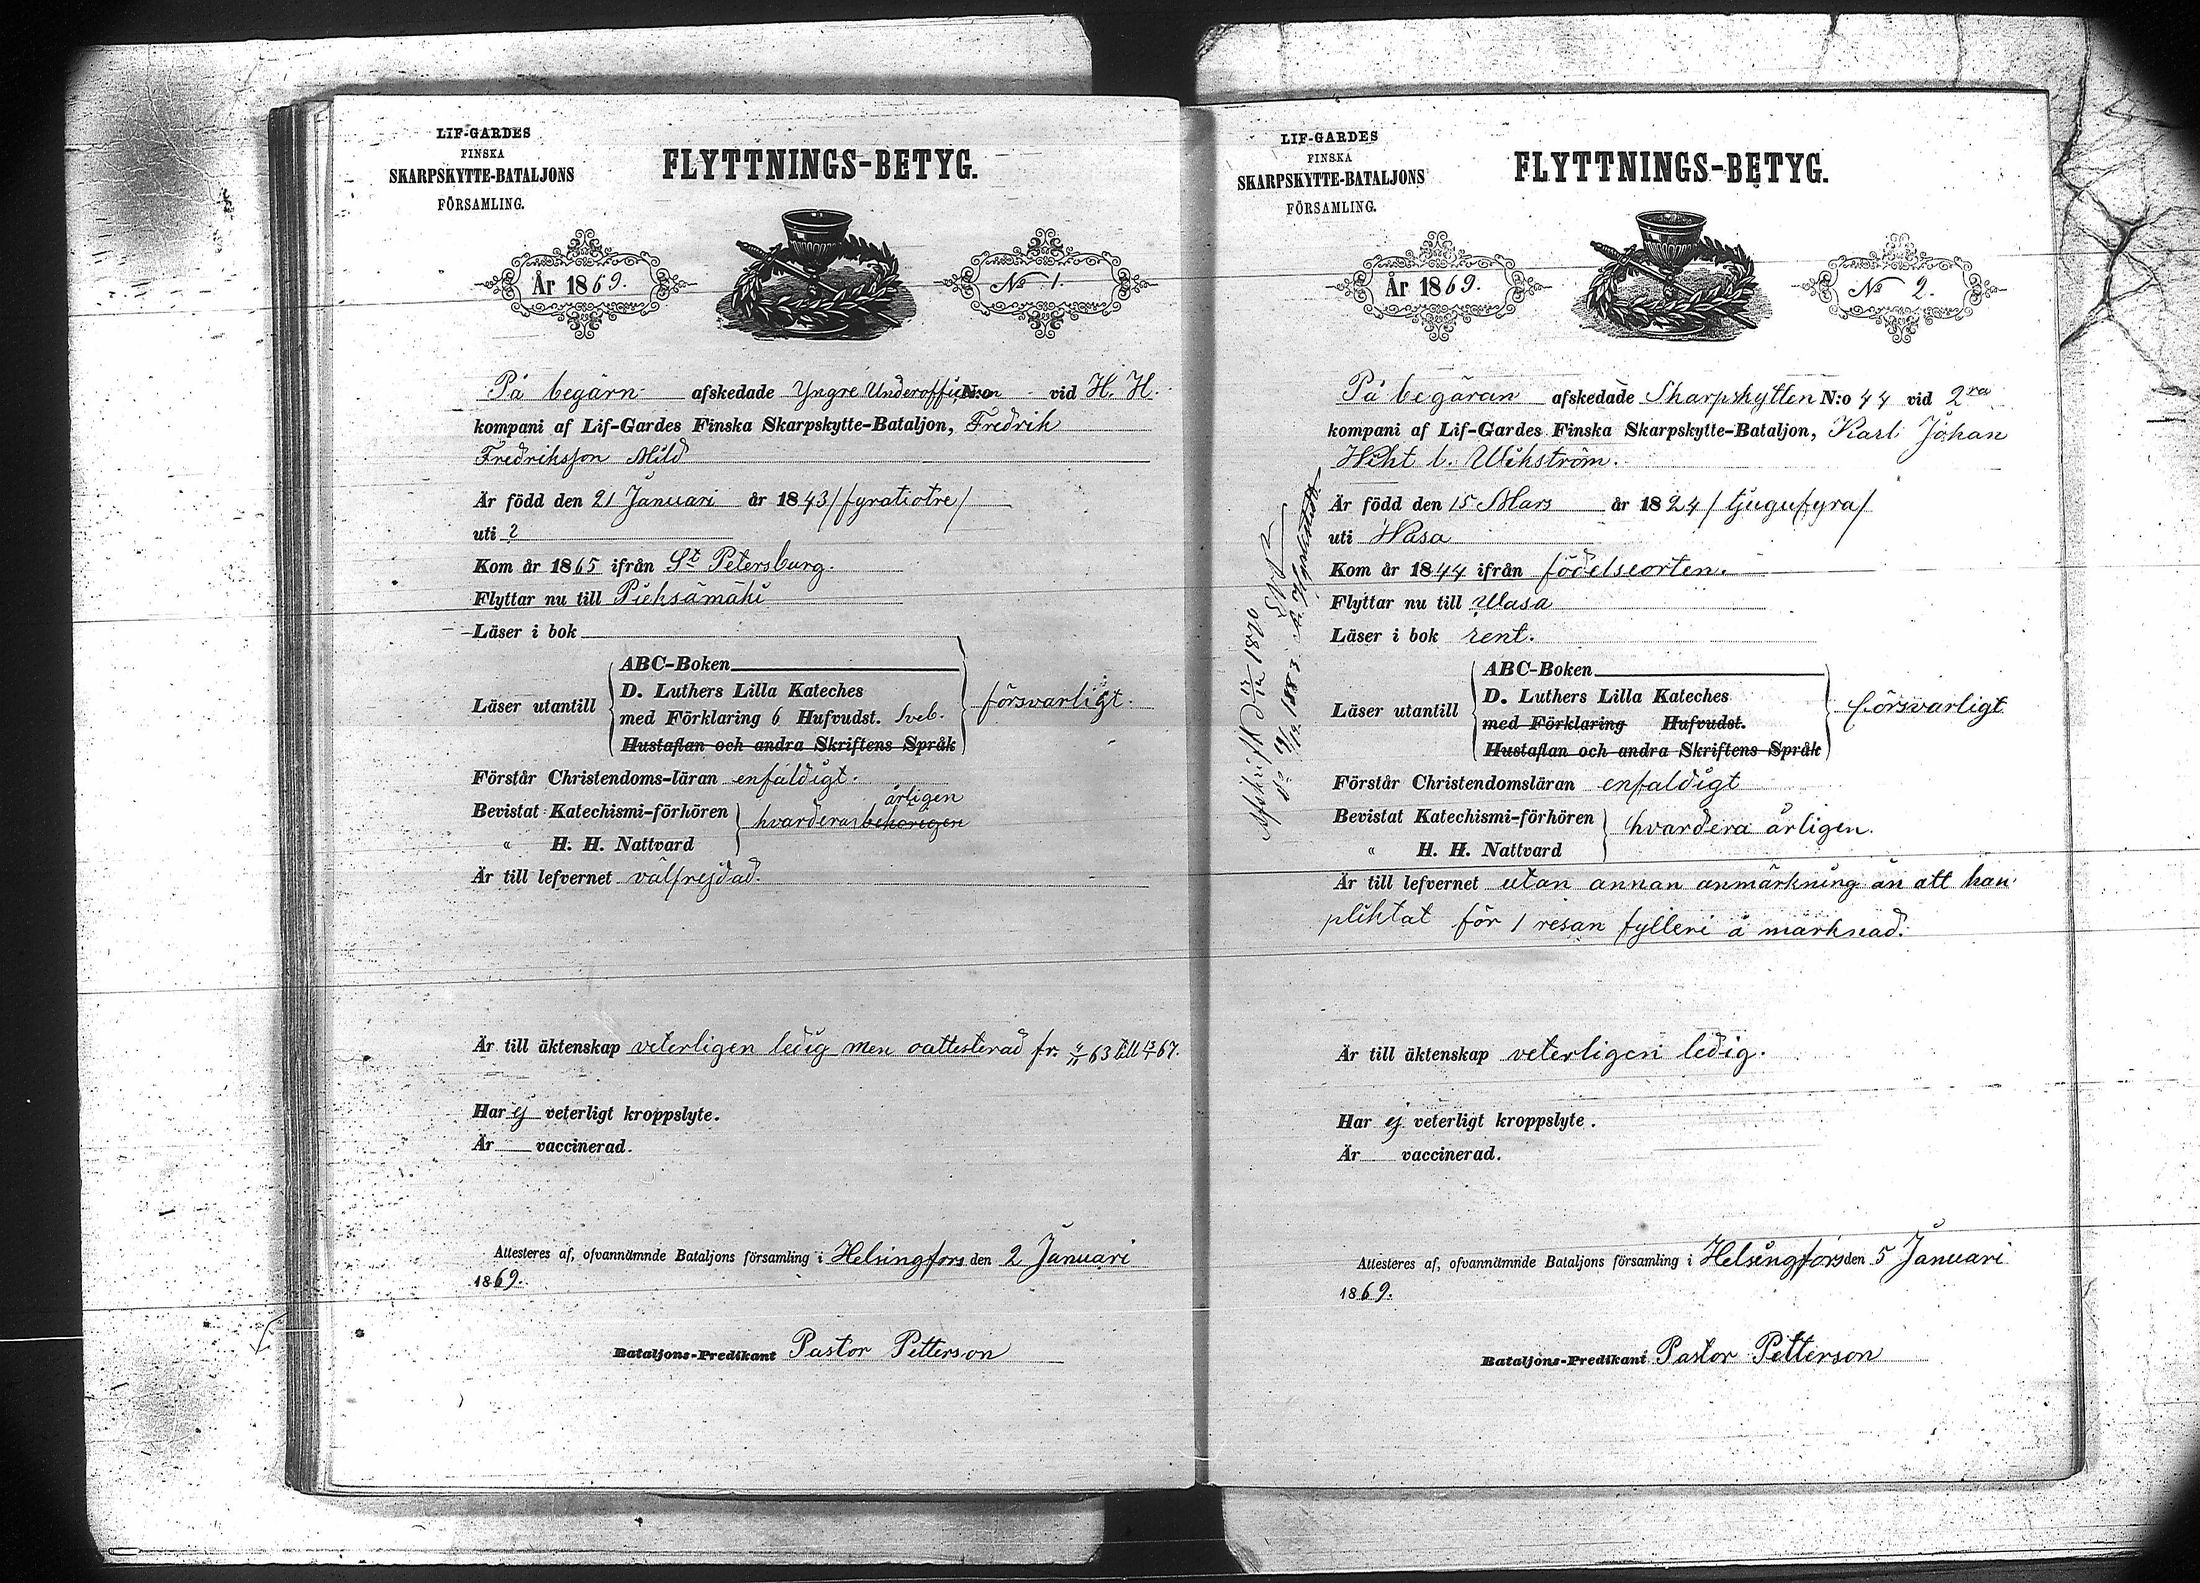 LIF-GARDES
FINSKA
SKARPSKYTTE-BATALJONS
FÖRSAMLING.
FLYTTNINGS-BETYG.
År 1869.
No 1.
På begärn afskedade Yngre Underofficeren N:o vid H. H.
kompani af Lif-Gardes Finska Skarpskytte-Bataljon, Fredrik
Fredriksson Mild
Är född den 21 Januari år 1843 /fyratiotre/
uti ?
Kom år 1865 ifrån St Petersburg.
Flyttar nu till Pieksämäki
Läser i bok
ABC-Boken
D. Luthers Lilla Kateches
Läser utantill
med Förklaring 6 Hufvudst. Sveb.
försvarligt.
Hustaflan och andra Skriftens Språk
Förstår Christendoms-läran enfaldigt.
årligen
Bevistat Katechismi-förhören
hvardera behörigen
" H. H. Nattvard
Är till lefvernet välfrejdad.
Är till äktenskap veterligen ledig men oattesterad fr. 63 till 67.
Har ej veterligt kroppslyte.
Är vaccinerad.
Attesteres af, ofvannämnde Bataljons församling i Helsingfors den 2 Januari
1869.
Bataljons-Predikant Pastor Petterson
LIF-GARDES
FINSKA
SKARPSKYTTE-BATALJONS
FÖRSAMLING.
FLYTTNINGS-BETYG.
År 1869.
No 2.
På begäran afskedade Skarpskytten N:o 44 vid 2ra
kompani af Lif-Gardes Finska Skarpskytte-Bataljon, Karl Johan
Wikström.
Är född den 15 Mars år 1824 /tjugufyra/
uti Wasa
Kom år 1844 ifrån födelseorten.
Flyttar nu till Wasa
Läser i bok rent.
ABC-Boken
D. Luthers Lilla Kateches
Läser utantill
med Förklaring Hufvudst.
försvarligt
Hustaflan och andra Skriftens Språk
Förstår Christendomsläran enfaldigt
Bevistat Katechismi-förhören
hvardera årligen.
" H. H. Nattvard
Är till lefvernet utan annan anmärkning än att han
pliktat för 1 resan fylleri å marknad.
Är till äktenskap veterligen ledig.
Har ej veterligt kroppslyte.
Är vaccinerad.
Attesteres af, ofvannämnde Bataljons församling i Helsingfors den 5 Januari
1869.
Bataljons-Predikant Pastor Petterson
Afskrift 1870
1883